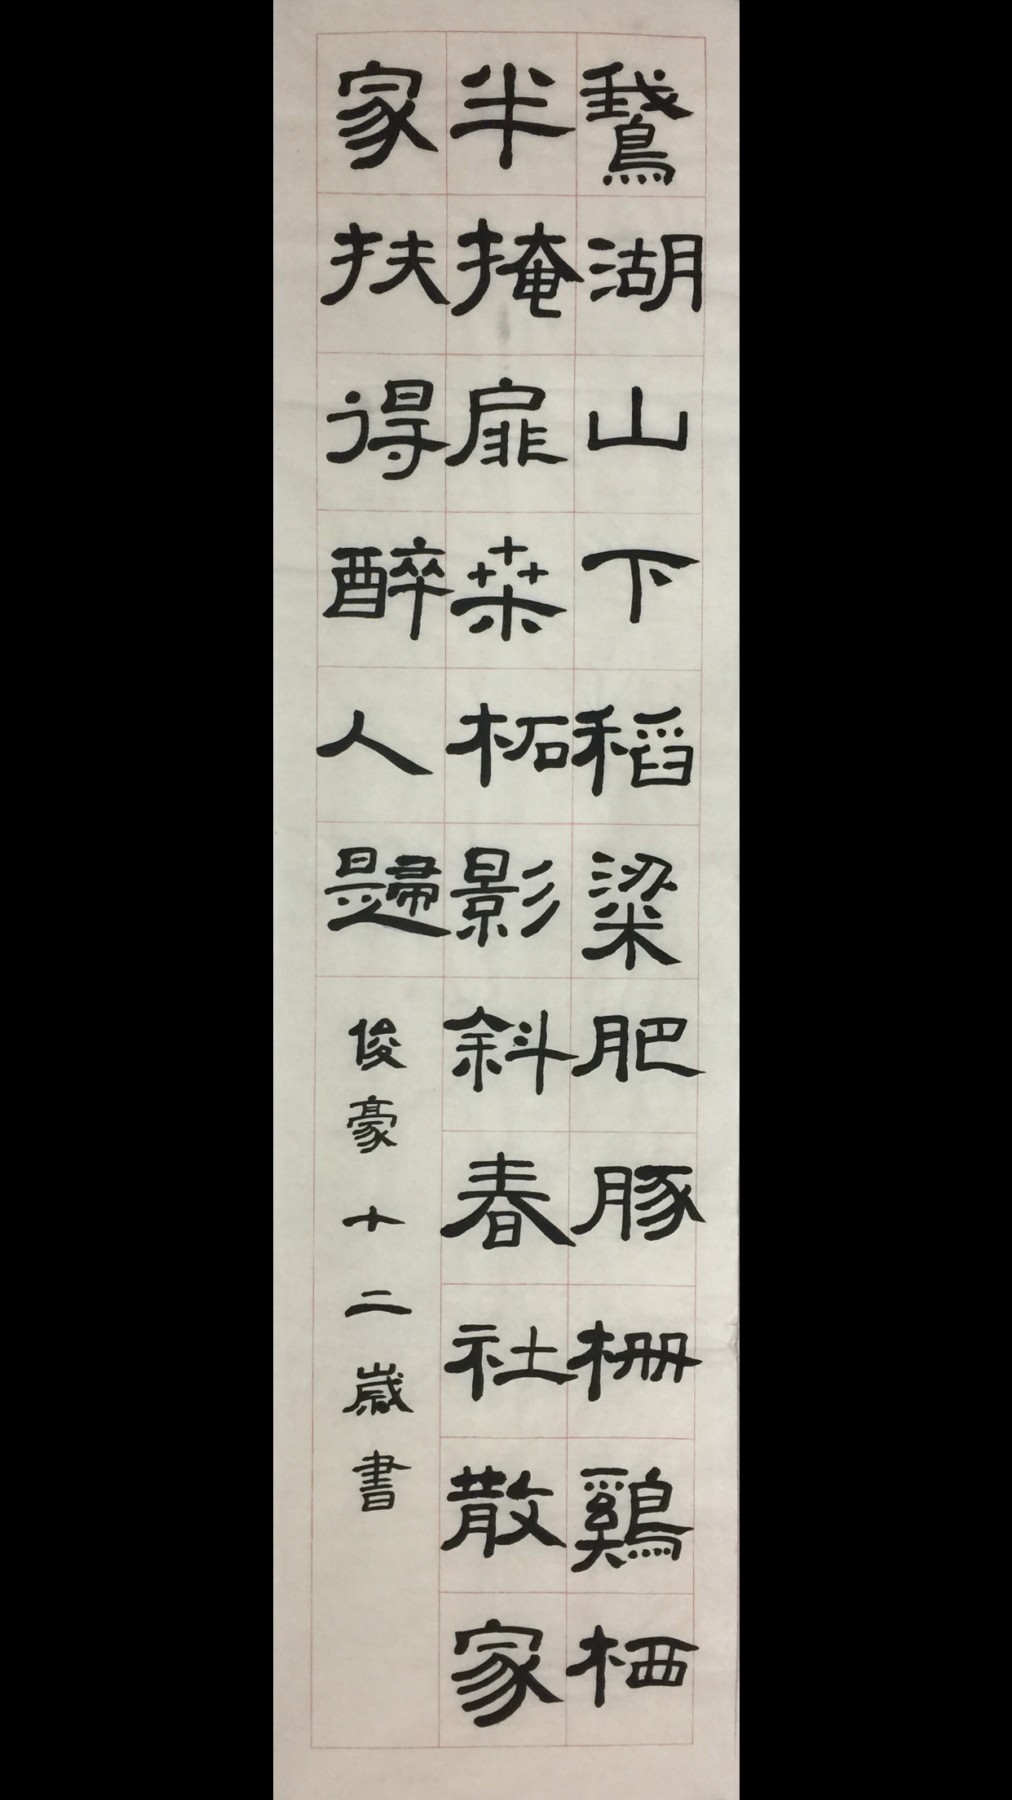 鵞湖山下稻粱肥豚栅鷄栖
半掩扉桒柘影斜春社散家
家扶得醉人歸
俊豪十二歲書